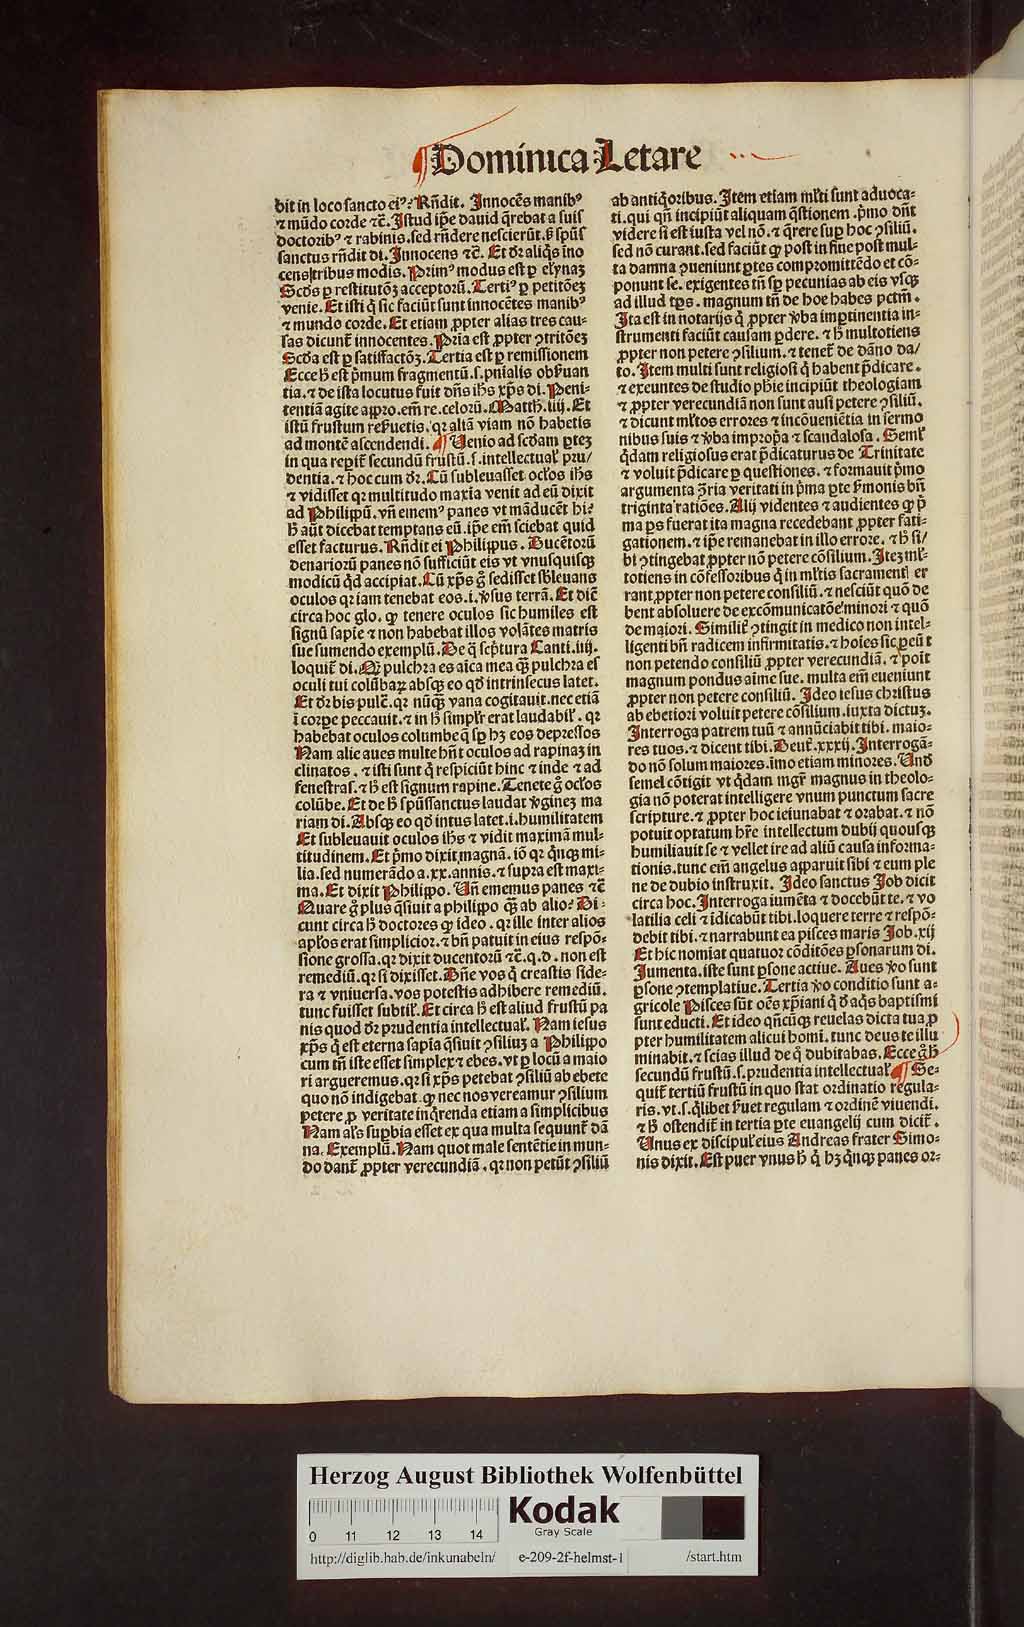 Dominica Letare
bit in loco sancto ei⁹? Rñdit. Innocẽs manib⁹
⁊ mũdo corde ⁊c̃. Istud ip̃e dauid q̃rebat a suis
doctorib⁹ ⁊ rabinis. sed rñdere nescierũt. ß spũs
sanctus rñdit di. Innocens ⁊c̃. Et dr̃ aliq̃s ĩno
cens tribus modis. Prim⁹ modus est ꝑ elynaꝫ
Scd̃s ꝑ restitutõꝫ acceptorũ. Terti⁹ ꝑ petitõeꝫ
venie. Et isti q̃ sic faciũt sunt innocẽtes manib⁹
⁊ mundo corde. Et etiam ꝓpter alias tres cau⸗
sas dicunt̃ innocentes. Pria est ꝓpter ꝯtritõeꝫ
Scd̃a est ꝑ satiffactõꝫ. Tertia est ꝑ remissionem
Ecce h̃ est p̃mum fragmentũ. s. pnialis obſuan
tia. ⁊ de ista locutus fuit dñs ihs xp̃s di. Peni⸗
tentiã agite aꝓpro. em̃ re. celorũ. Matth̃. iiij. Et
istũ frustum reſuetis. qꝛ aliã viam nõ habetis
ad montẽ ascendendi. ¶ Uenio ad scd̃am ꝑteꝫ
in qua reꝑit̃ secundũ frustũ. s. intellectual̃ pru/
dentia. ⁊ hoc cum dr̃. Cũ subleuasset ocl̃os ihs
⁊ vidisset qꝛ multitudo maxĩa venit ad eũ dixit
ad Philippũ. vñ emem⁹ panes vt mãducẽt hi?
h̃ aũt dicebat temptans eũ. ip̃e em̃ sciebat quid
esset facturus. Rñdit ei Philippus. Ducẽtorũ
denariorũ panes nõ sufficiũt eis vt vnusquisqꝫ
modicũ qd̃ accipiat. Cũ xp̃s g̃ sedisset sb̃leuans
oculos qꝛ iam tenebat eos. i. ꝟsus terrã. Et diẽ
circa hoc glo. ꝙ tenere oculos sic humiles est
signũ sapie ⁊ non habebat illos volãtes matris
sue sumendo exemplũ. De q̃ scp̃tura Canti. iiij.
loquit̃ di. Qꝫ pulchra es aĩca mea qꝫ̃ pulchra es
oculi tui colũbaꝝ absqꝫ eo qd̃ intrinsecus latet.
Et dr̃ bis pulc̃. qꝛ nũqꝫ̃ vana cogitauit. nec etiã
ĩ corꝑe peccauit. ⁊ in h̃ simpl̃r erat laudabil̃. qꝛ
habebat oculos columbe q̃ sꝑ hꝫ eos depressos
Nam alie aues multe hñt oculos ad rapinaꝫ in
clinatos. ⁊ isti sunt q̃ respiciũt hinc ⁊ inde ⁊ ad
fenestras. ⁊ h̃ est signum rapine. Tenete g̃ ocl̃os
colũbe. Et de h̃ spũssanctus laudat ꝟgineꝫ ma
riam di. Absqꝫ eo qd̃ intus latet. i. humilitatem
Et subleuauit oculos ihs ⁊ vidit maximã mul⸗
titudinem. Et p̃mo dixit magnã. iõ qꝛ q̃nqꝫ mi⸗
lia. sed numerãdo a. xx. annis. ⁊ supra est maxi⸗
ma. Et dixit Philippo. Uñ ememus panes ⁊c̃
Quare g̃ plus q̃siuit a philippo qꝫ̃ ab alio? Di⸗
cunt circa h̃ doctores ꝙ ideo. qꝛ ille inter alios
apl̃os erat simplicior. ⁊ bñ patuit in eius respõ⸗
sione grossa. qꝛ dixit ducentorũ ⁊c̃. q. d. non est
remediũ. qꝛ si dixisset. Dñe vos q̃ creastis side⸗
ra ⁊ vniuersa. vos potestis adhibere remediũ.
tunc fuisset subtil̃. Et circa h̃ est aliud frustũ pa
nis quod dꝫ prudentia intellectual̃. Nam iesus
xp̃s q̃ est eterna sapĩa q̃siuit ꝯsiliuꝫ a Philippo
cum tñ iste esset simplex ⁊ ebes. vt ꝑ locũ a maio
ri argueremus. qꝛ si xp̃s petebat ꝯsiliũ ab ebete
quo nõ indigebat. ꝙ nec nos vereamur ꝯsilium
petere ꝓ veritate inq̃renda etiam a simplicibus
Nam al̃s suꝑbia esset ex qua multa sequunt̃ dã
na. Exemplũ. Nam quot male sentẽtie in mun⸗
do dant̃ ꝓpter verecundiã. qꝛ non petũt ꝯsiliũ
ab antiq̃oribus. Item etiam ml̃ti sunt aduoca⸗
ti. qui qñ incipiũt aliquam q̃stionem. p̃mo dñt
videre si est iusta vel nõ. ⁊ q̃rere suꝑ hoc ꝯsiliũ.
sed nõ curant. sed faciũt ꝙ post in fine post mul⸗
ta damna ꝯueniunt ꝑtes compromittẽdo et cõ⸗
ponunt se. exigentes tñ sꝑ pecunias ab eis vsqꝫ
ad illud tp̃s. magnum tñ de hoe habes pctm̃.
Ita est in notarijs q̃ ꝓpter ꝟba imꝑtinentia in⸗
strumenti faciũt causam ꝑdere. ⁊ h̃ multotiens
ꝓpter non petere ꝯsilium. ⁊ tenet̃ de dãno da/
to. Item multi sunt religiosi q̃ habent p̃dicare.
⁊ exeuntes de studio ph̃ie incipiũt theologiam
⁊ ꝓpter verecundiã non sunt ausi petere ꝯsiliũ.
⁊ dicunt ml̃tos errores ⁊ incõueniẽtia in sermo
nibus suis ⁊ ꝟba impropr̃a ⁊ scandalosa. Seml̃
q̃dam religiosus erat p̃dicaturus de Trinitate
⁊ voluit p̃dicare ꝑ questiones. ⁊ formauit p̃mo
argumenta ꝯ̃ria veritati in p̃ma ꝑte ẛmonis bñ
triginta ratiões. Alij videntes ⁊ audientes ꝙ p̃
ma ps fuerat ita magna recedebant ꝓpter fati⸗
gationem. ⁊ ip̃e remanebat in illo errore. ⁊ h̃ si/
bi ꝯtingebat ꝓpter nõ petere cõsilium. Iteꝫ ml̃⸗
totiens in cõfessoribus q̃ in ml̃tis sacramenti er
rant ꝓpter non petere consiliũ. ⁊ nesciũt quõ de
bent absoluere de excõmunicatõe minori ⁊ quõ
de maiori. Similit̃ ꝯtingit in medico non intel⸗
ligenti bñ radicem infirmitatis. ⁊ hoĩes sic ꝑeũt
non petendo consiliũ ꝓpter verecundiã. ⁊ poĩt
magnum pondus aĩme sue. multa em̃ eueniunt
ꝓpter non petere consiliũ. Ideo iesus christus
ab ebetiori voluit petere cõsilium. iuxta dictuꝫ.
Interroga patrem tuũ ⁊ annũciabit tibi. maio⸗
res tuos. ⁊ dicent tibi. Deut̃. xxxij. Interrogã⸗
do nõ solum maiores. ĩmo etiam minores. Und̃
semel cõtigit vt q̃dam mgr̃ magnus in theolo⸗
gia nõ poterat intelligere vnum punctum sacre
scripture. ⁊ ꝓpter hoc ieiunabat ⁊ orabat. ⁊ nõ
potuit optatum hr̃e intellectum dubij quousqꝫ
humiliauit se ⁊ vellet ire ad aliũ causa informa⸗
tionis. tunc em̃ angelus apparuit sibi ⁊ eum ple
ne de dubio instruxit. Ideo sanctus Job dicit
circa hoc. Interroga iumẽta ⁊ docebũt te. ⁊ vo
latilia celi ⁊ ĩdicabũt tibi. loquere terre ⁊ respõ⸗
debit tibi. ⁊ narrabunt ea pisces maris Job. xij
Et hic nomiat quatuor cõditões ꝑsonarum di.
Jumenta. iste sunt ꝑsone actiue. Aues ꝟo sunt
ꝑsone ꝯtemplatiue. Tertia ꝟo conditio sunt a⸗
gricole Pisces sũt oẽs xp̃iani q̃ d̃ aq̃s baptismi
sunt educti. Et ideo qñcũqꝫ reuelas dicta tua ꝓ
pter humilitatem alicui homĩ. tunc deus te illu
minabit. ⁊ scias illud de q̃ dubitabas. Ecce g̃ h̃
secundũ frustũ. s. prudentia intellectual̃ ¶ Se⸗
quit̃ tertiũ frustũ in quo stat ordinatio regula⸗
ris. vt. s. q̃libet ẛuet regulam ⁊ ordinẽ viuendi.
⁊ h̃ ostendit̃ in tertia ꝑte euangelij cum dicit̃.
Unus ex discipul̃ eius Andreas frater Simo⸗
nis dixit. Est puer vnus h̃ q̃ hꝫ q̃nqꝫ panes or⸗
Herzog August Bibliothek Wolfenbüttel
Kodak
Gray Scale
0 11 12 13 14
http://diglib.hab.de/inkunabeln/ e-209-2f-helmst-1 /start.htm